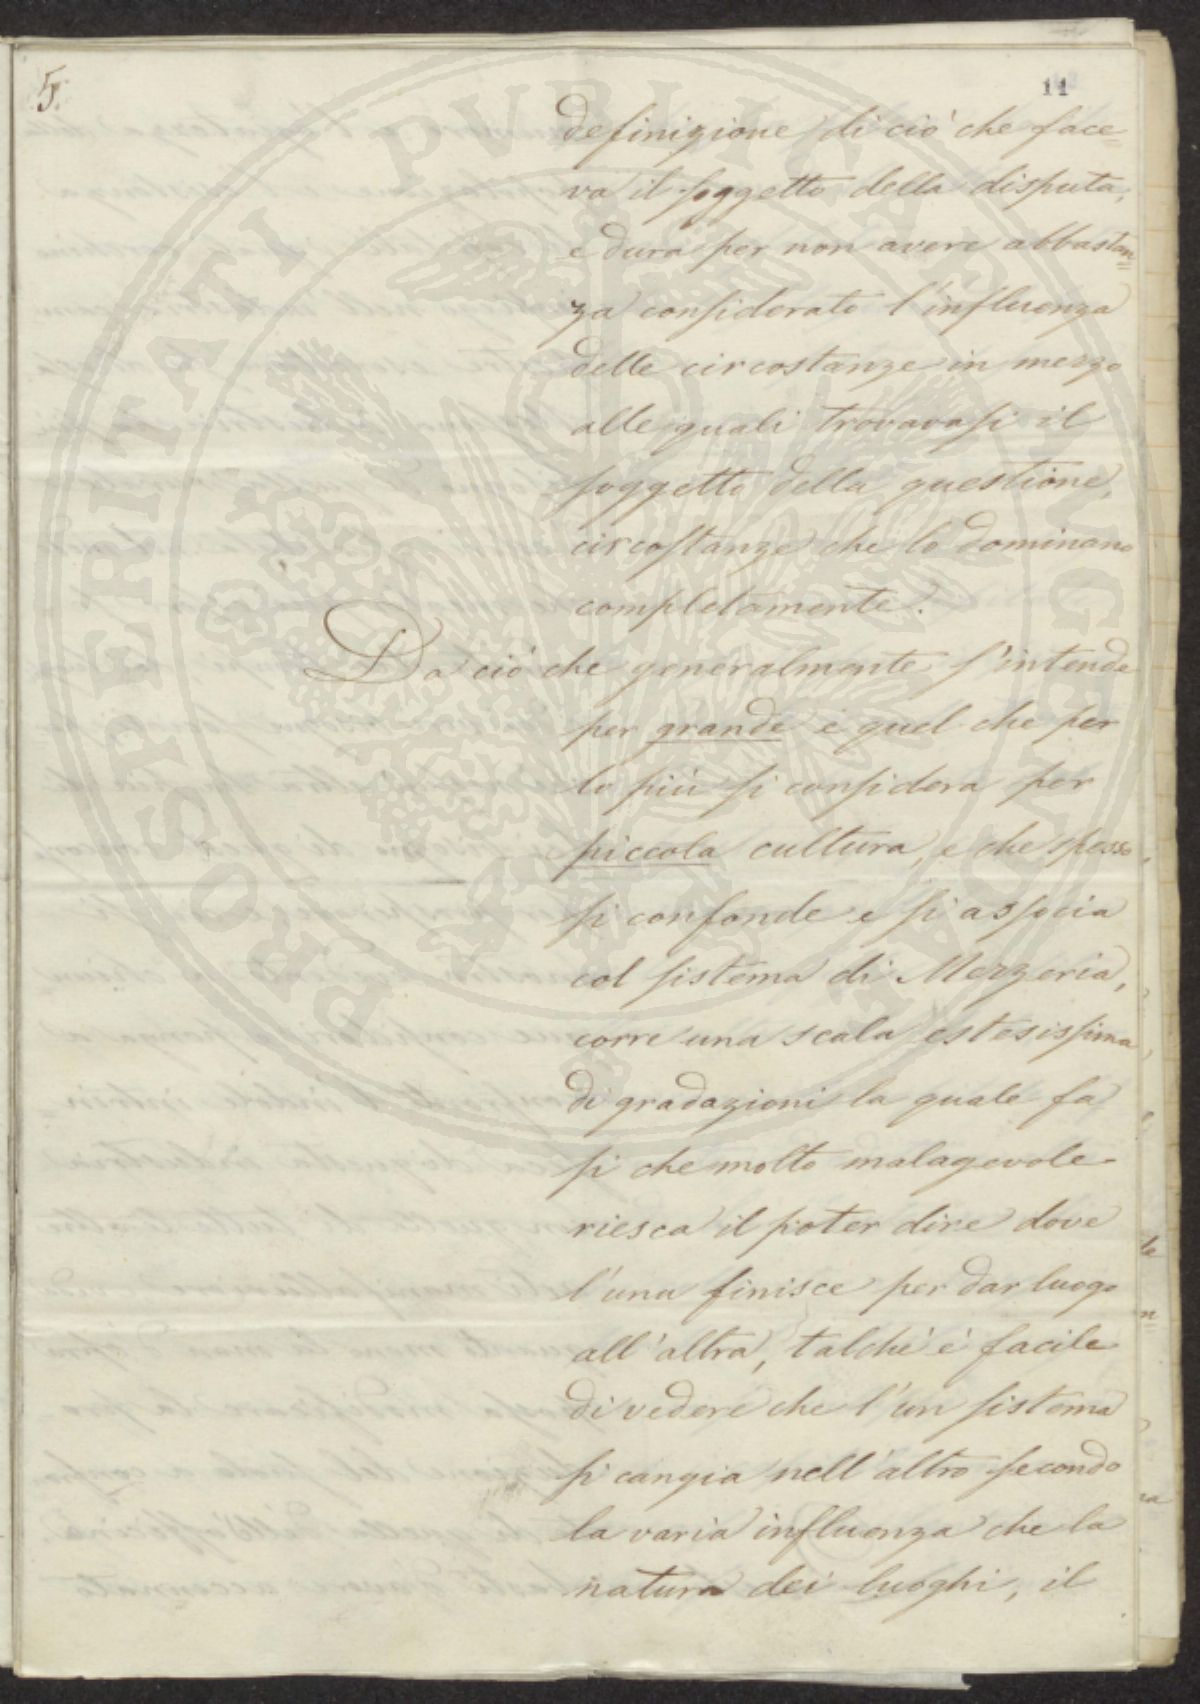 5.
11
definizione di ciò che face=
va il soggetto della disputa,
e dura per non avere abbastan=
za considerato l'influenza
delle circostanze in mezzo
alle quali trovavasi il
soggetto della questione,
circostanze che lo dominano
completamente.
Da ciò che generalmente s'intende
per grande e quel che per
lo più si considera per
piccola cultura, e che spesso
si confonde e si associa
col sistema di Mezzeria,
corre una scala estesissima
di gradazioni la quale fa
si che molto malagevole
riesca il poter dire dove
l'una finisce per dar luogo
all'altra, talchè è facile
di vedere che l'un sistema
si cangia nell'altro secondo
la varia influenza che la
natura dei luoghi, il
PROSPERITATI PVBLICAE AVGENDAE